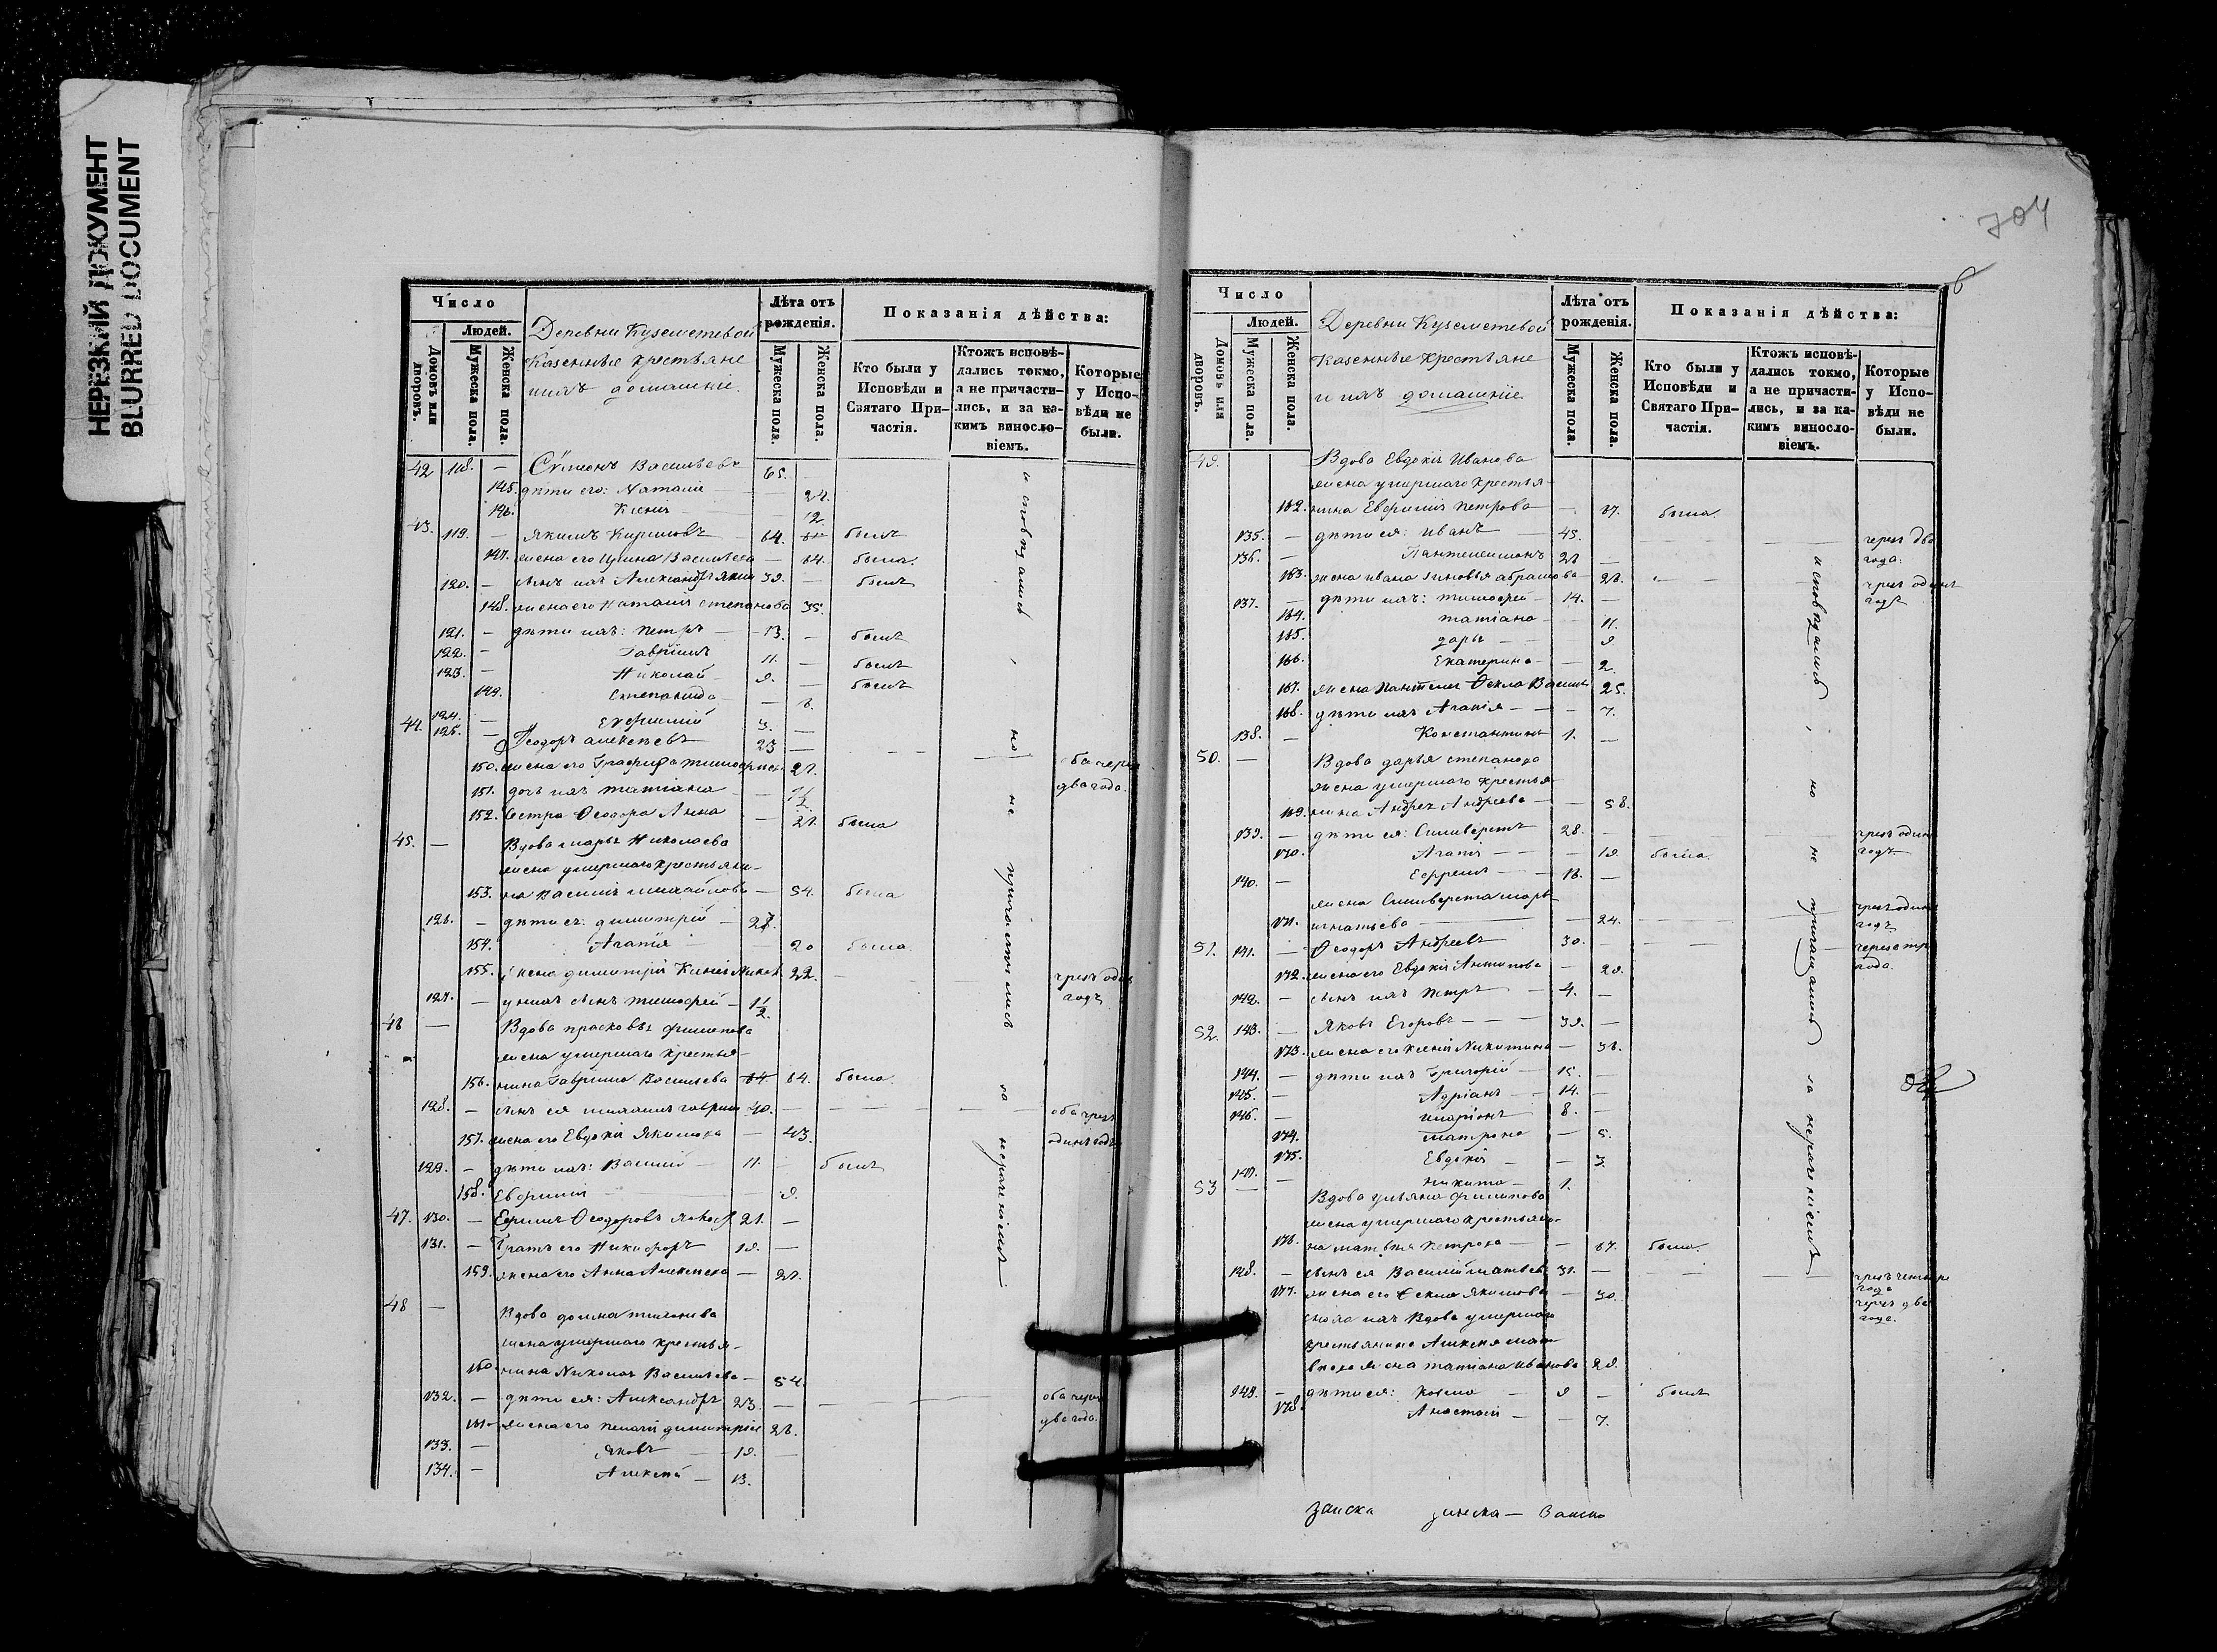 НЕРЕЗКИЙ ДОКУМЕНТ
BLURRED DOCUMENT
704
Число
Домовъ или дворовъ.
Людей.
Мужеска пола.
Женска пола.
Деревни Куземетевой
Казенные крестьяне
ихъ домашніе.
Лѣта отъ рожденія.
Мужеска пола.
Женска пола.
Показанія дѣйства:
Кто были у Исповѣди и Святаго При-частія.
Ктожъ исповѣ-дались токмо, а не причасти-лись, и за ка-кимъ виносло-віемъ.
Которые у Испо-вѣди не были.
42 118. — Сѵмеонъ Васильевъ 65. —
145. дѣти его: Наталія — 24.
146. Ксенія — 12
43. 119. — Якимъ Кириловъ — 64. былъ
147. жена его Ирина Васильева — 64. была.
120. — сынъ ихъ Александръ 39. — былъ
148. жена его Наталія Степанова 35.
121. — дѣти ихъ: Петръ — 13. — былъ
122. — Гавріилъ 11. — былъ
123. — Николай 9. — былъ
149. Степанида — 6.
124. — Евфимій 3. —
44. 125. — Ѳеодоръ Алексѣевъ 23 —
150. жена его 21. оба чрезъ
151. дочь ихъ Татіана — 1 1/2 два года.
152. Сестра Ѳеодора Анна — 21. была
45. — Вдова Марья Николаева
жена умершаго крестьяни-
153. на Василія Михайлова — 54. была
126. — дѣти ея: Димитрій — 27.
154. Агапія — 20 была
155. жена Димитрія Ксенія 22. — чрезъ одинъ
127. — у нихъ сынъ Тимофей — 1 1/2. годъ
46 — Вдова Прасковья Филипова
жена умершаго крестья-
156. нина Гавриила Васильева 64. была.
128. — сынъ ея 40. — оба чрезъ
157. жена его Евдокія Якимова — 43. одинъ годъ
129. — дѣти ихъ: Василій — 11. — былъ
158. Евфимія — 9.
47. 130. — Ефимъ Ѳеодоровъ 21. —
131. — Братъ его Никифоръ 19. —
159. жена его Анна Алексѣева — 21.
48 — Вдова Домна
жена умершаго крестья-
160. нина Николая Васильева — 54.
132. — дѣти ея: Александръ 23. — оба чрезъ
161. жена его 26. два года.
133. — Яковъ — 19. —
134. — Алексѣй — 13.
исповѣдались, но не причастились за нераченіемъ
Число
Домовъ или дворовъ.
Людей.
Мужеска пола.
Женска пола.
Деревни Куземетевой
Казенные крестьяне
и ихъ домашніе.
Лѣта отъ рожденія.
Мужеска пола.
Женска пола.
Показанія дѣйства:
Кто были у Исповѣди и Святаго При-частія.
Ктожъ исповѣ-дались токмо, а не причасти-лись, и за ка-кимъ виносло-віемъ.
Которые у Испо-вѣди не были.
49. Вдова Евдокія Иванова
жена умершаго крестья-
162. нина Евфимія Петрова — 67. была.
135. — дѣти ея: Иванъ — 45. чрезъ два
136. — Пантелеимонъ 26 — года.
163. жена Ивана Зиновья Абрамова — 26. чрезъ одинъ
137. — дѣти ихъ: Тимофей — 14. — годъ
164. Татіана — 11.
165. Дарья — 9
166. Екатерина — 2.
167. жена Пантелея Ѳекла 25.
168. дѣти ихъ Агапія — 7.
138. — Константинъ 1. —
50. — Вдова Дарья Степанова
жена умершаго крестья-
169. нина Андрея Андреева — 58.
139. — дѣти ея: Сильверстъ 28. — чрезъ одинъ
170. Агапія — 19. была. годъ.
140. — Ефремъ — 16. —
жена Сильверста Марья
171. Игнатьева — 24. чрезъ одинъ годъ
51. 141. — Ѳеодоръ Андреевъ 30. — чрезъ три
172. жена его Евдокія Антипова — 29. года.
142. — сынъ ихъ Петръ — 4. —
52. 143. — Яковъ Егоровъ — 39. —
173. жена его Ксенія Никитина — 36.
144. — дѣти ихъ Григорій — 15. —
145. — Адріанъ — 14. —
146. — Иларіонъ 8. —
174. Матрона — 5.
175. Евдокія — 3.
147. — Никита — 1.
53 — Вдова Ульяна Филипова
жена умершаго крестьяни-
176. на Матвѣя Петрова — 67. была.
148. — сынъ ея Василій Матвѣевъ 31. — чрезъ четыре
177. жена его Ѳекла Якимова — 30. года
сноха ихъ Вдова умершаго чрезъ два
крестьянина Алексѣя Мат- года.
вѣева жена Татіана Иванова 29.
149. — дѣти ея: Козма — 9 — былъ
178. Анастасія — 7.
исповѣдались, но не причащались за нераченіемъ